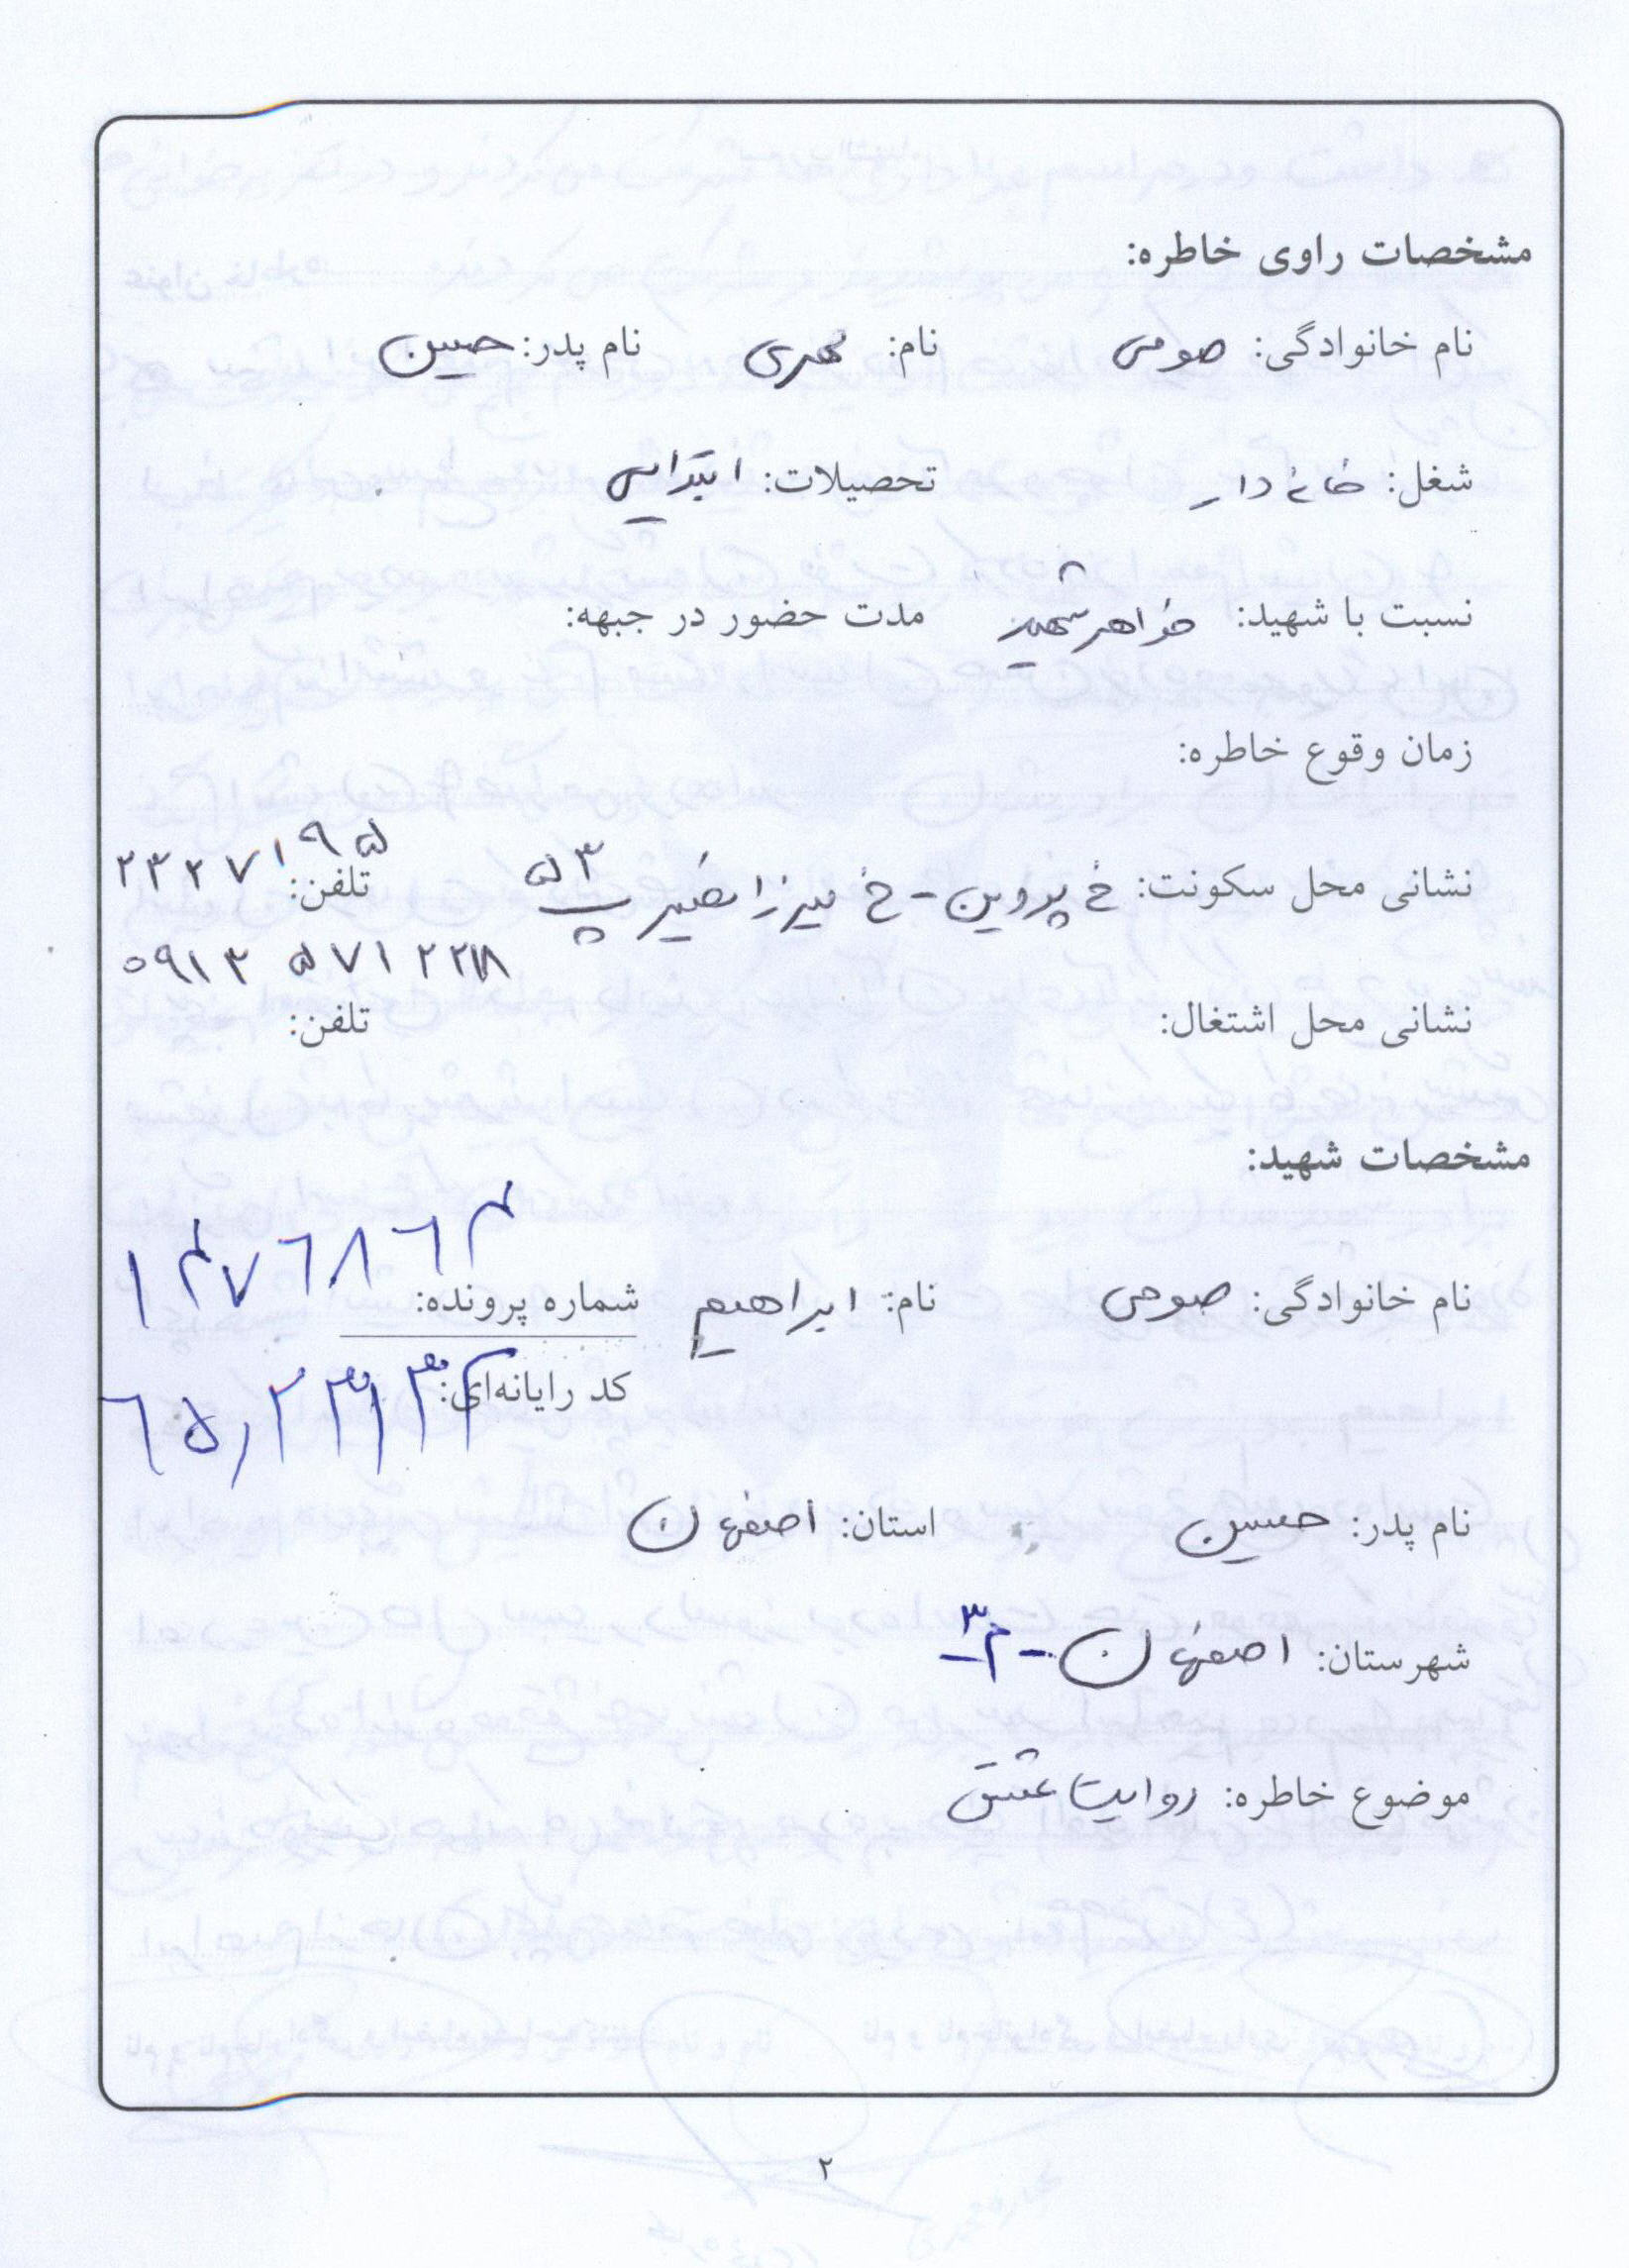 مشخصات راوی خاطره:
نام خانوادگی: صومی نام: مهری نام پدر: حسین
شغل: خانه دار تحصیلات: ابتدایی
نسبت با شهید: خواهر شهید مدت حضور در جبهه:
زمان وقوع خاطره:
نشانی محل سکونت: خ پروین - خ میرزا نصیر پ ۵۳ تلفن: ۲۳۲۷۱۹۵
۰۹۱۳ ۵۷۱ ۲۲۱۸
نشانی محل اشتغال: تلفن:
مشخصات شهید:
نام خانوادگی: صومی نام: ابراهیم شماره پرونده: ۱۴۷۶۸۶۴
کد رایانه‌ای:
نام پدر: حسین استان: اصفهان
شهرستان: اصفهان - م۳ -
موضوع خاطره: روایت عشق
۲